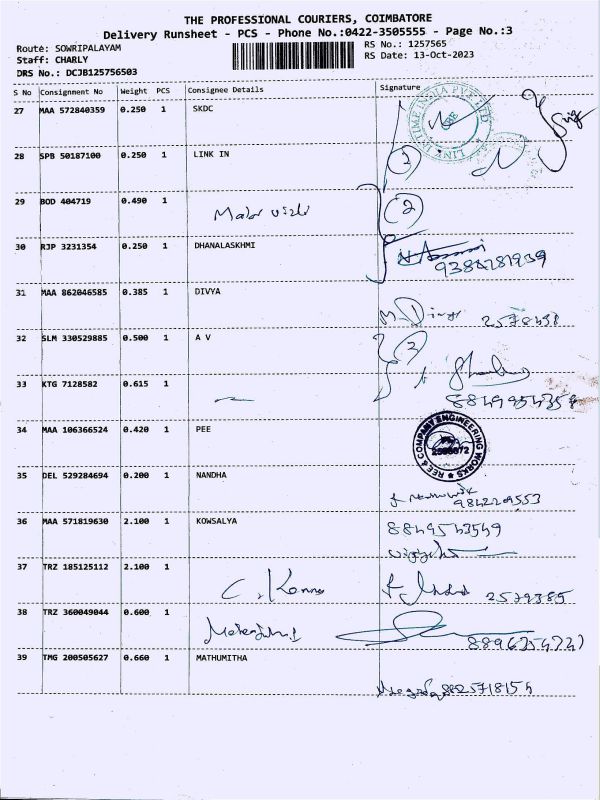 THE PROFESSIONAL COURIERS, COIMBATORE
Delivery Runsheet - PCS - Phone No.:0422-3505555 - Page No.:3
Route: SOWRIPALAYAM
RS No.: 1257565
Staff: CHARLY
RS Date: 13-Oct-2023
DRS No.: DCJB125756503
S No Consignment No Weight PCS Consignee Details Signature
27 MAA 572840359 0.250 1 SKDC
28 SPB 50187100 0.250 1 LINK IN
2
29 BOD 404719 0.490 1
2
30 RJP 3231354 0.250 1 DHANALASKHMI
31 MAA 862046585 0.385 1 DIVYA
32 SLM 330529885 0.500 1 A V
2
33 KTG 7128582 0.615 1
34 MAA 106366524 0.420 1 PEE
35 DEL 529284694 0.200 1 NANDHA
36 MAA 571819630 2.100 1 KOWSALYA
8849543549
37 TRZ 185125112 2.100 1
2579385
38 TRZ 360049044 0.600 1
39 TMG 200505627 0.660 1 MATHUMITHA
8825718154